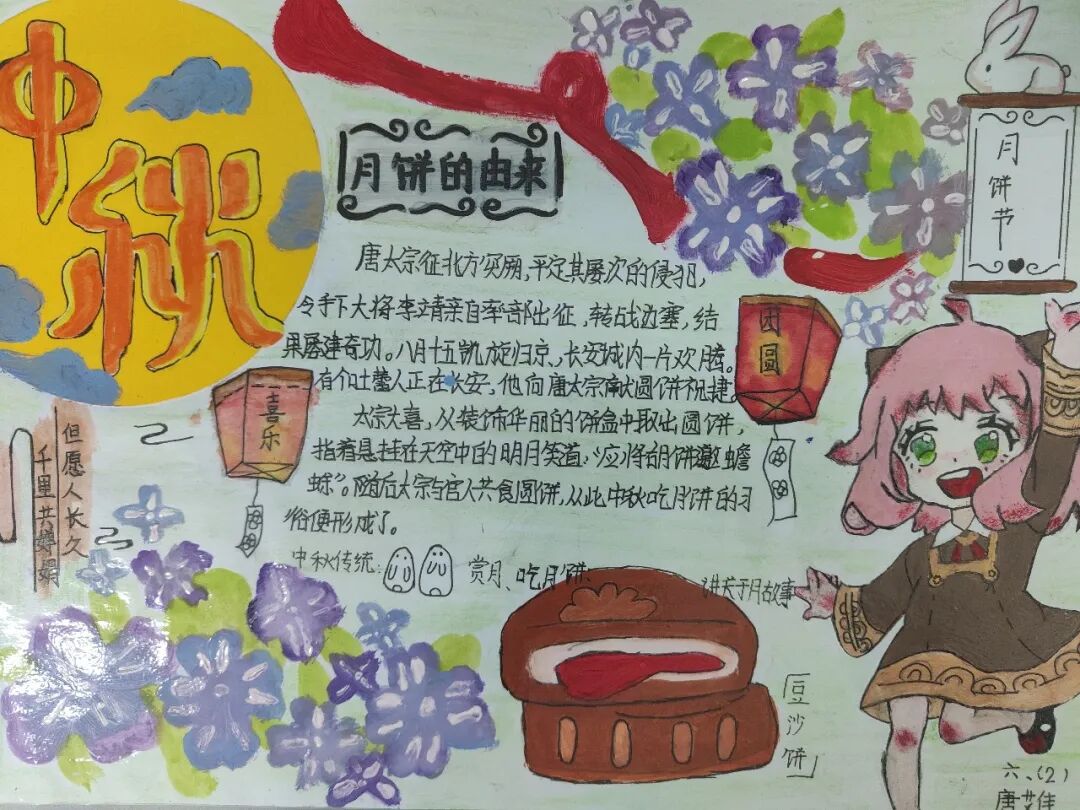 中秋
月饼的由来
月饼节
唐太宗征北方突厥,平定其屡次的侵犯,
令手下大将李靖亲自率部出征,转战边塞,结
果屡建奇功。八月十五凯旋归京,长安城内一片欢腾。
有个吐蕃人正在长安,他向唐太宗献圆饼祝捷。
太宗大喜,从装饰华丽的饼盒中取出圆饼,
指着悬挂在天空中的明月笑道:“应将胡饼邀蟾
蜍”。随后太宗与官人共食圆饼,从此中秋吃月饼的习
俗便形成了。
团圆
喜乐
但愿人长久
千里共婵娟
中秋传统:
赏月、吃月饼、
讲关于月故事
「豆沙饼」
六、(2)
唐